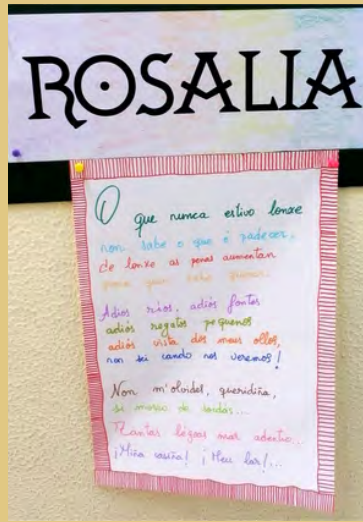 ROSALIA
O que nunca estivo lonxe
non sabe o que é padecer,
de lonxe as penas aumentan
para quen sabe querer.
Adios ríos, adiós fontes
adiós regatos pequenos
adiós vista dos meus ollos,
non sei cando nos veremos!
Non m'olvides, queridiña,
si morro de soidás...
Tantas légoas mar adentro...
¡Miña casiña! ¡Meu lar!...